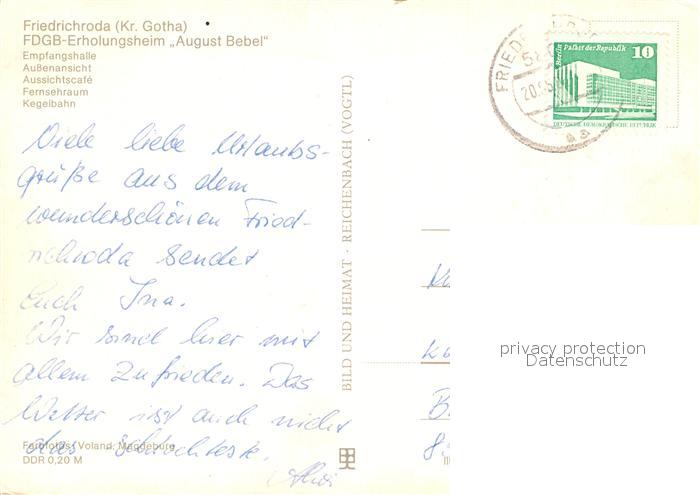 Friedrichroda (Kr. Gotha)
FDGB-Erholungsheim „August Bebel"
Empfangshalle
Außenansicht
Aussichtscafé
Fernsehraum
Kegelbahn
Viele liebe Urlaubs-
grüße aus dem
wunderschönen Fried-
richroda sendet
Euch Ina.
Wir sind hier mit
allem zufrieden. Das
Wetter ist auch nicht
das schlechteste.
Farbfotos: Voland, Magdeburg
DDR 0,20 M
BILD UND HEIMAT · REICHENBACH (VOGTL)
Berlin Palast der Republik 10
DEUTSCHE DEMOKRATISCHE REPUBLIK
privacy protection
Datenschutz